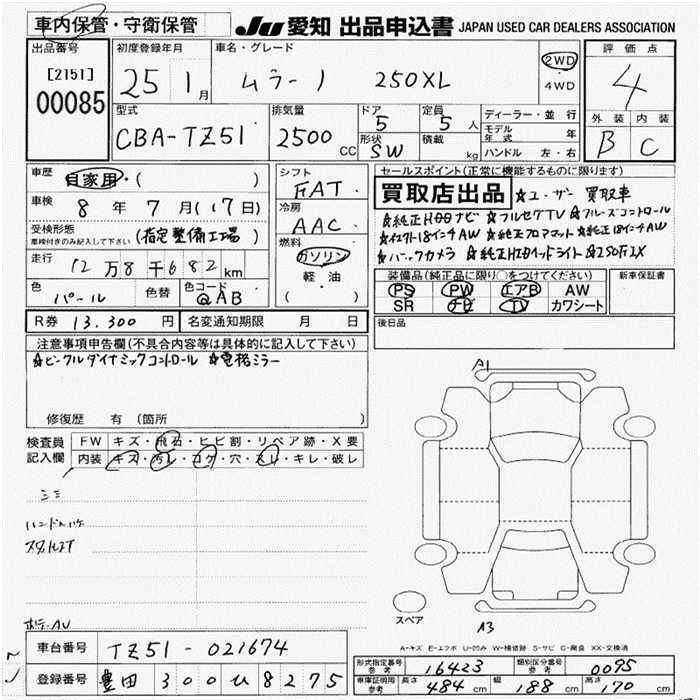 車内保管・守衛保管
JU 愛知 出品申込書 JAPAN USED CAR DEALERS ASSOCIATION
出品番号 初度登録年月 車名・グレード 評価点
[2151]
00085 25 1月 ムラーノ 250XL 2WD 4WD 4
型式 排気量 ドア 定員 ディーラー・並行 外装 内装
CBA-TZ51 2500CC 5 5人 モデル年式 年 B C
形状 積載 ハンドル 左・右
SW kg
車歴 自家用・( ) シフト FAT セールスポイント(正常に機能するものに限り)
買取店出品 ★ユーザー買取車
車検 8年7月(17日) 冷房 AAC
★純正HDDナビ ★フルセグTV ★クルーズコントロール
受検形態 車検付きのみ記入して下さい (指定整備工場) 燃料 ガソリン
18インチAW ★純正フロアマット ★純正18インチAW
★バックカメラ ★純正HIDヘッドライト
走行 12万8千682km 軽・油
( )
装備品(純正品に限り○をつけてください) 新車保証書
色 パール 色替 色コード QAB
PS PW エアB AW
SR ナビ TV カワシート
R券 13.300円 名変通知期限 月 日
後日品
注意事項申告欄(不具合内容等は具体的に記入して下さい)
★ビークルダイナミックコントロール ★電格ミラー
修復歴 有 (箇所
A1
検査員 FW キズ・飛石・ヒビ割・リペア跡・X要
記入欄 内装 キズ・汚レ・コゲ・穴・スレ・キレ・破レ
シミ
スペア
A3
A-キズ E-エクボ U-凹み W-補修跡 S-サビ C-腐食 XX-交換済
車台番号 TZ51-021674
登録番号 豊田 300 ひ 8275
形式指定番号 参考 16423 類別区分番号 参考 0095
車庫証明用 参考 長さ 484cm 幅 188cm 高さ 170cm